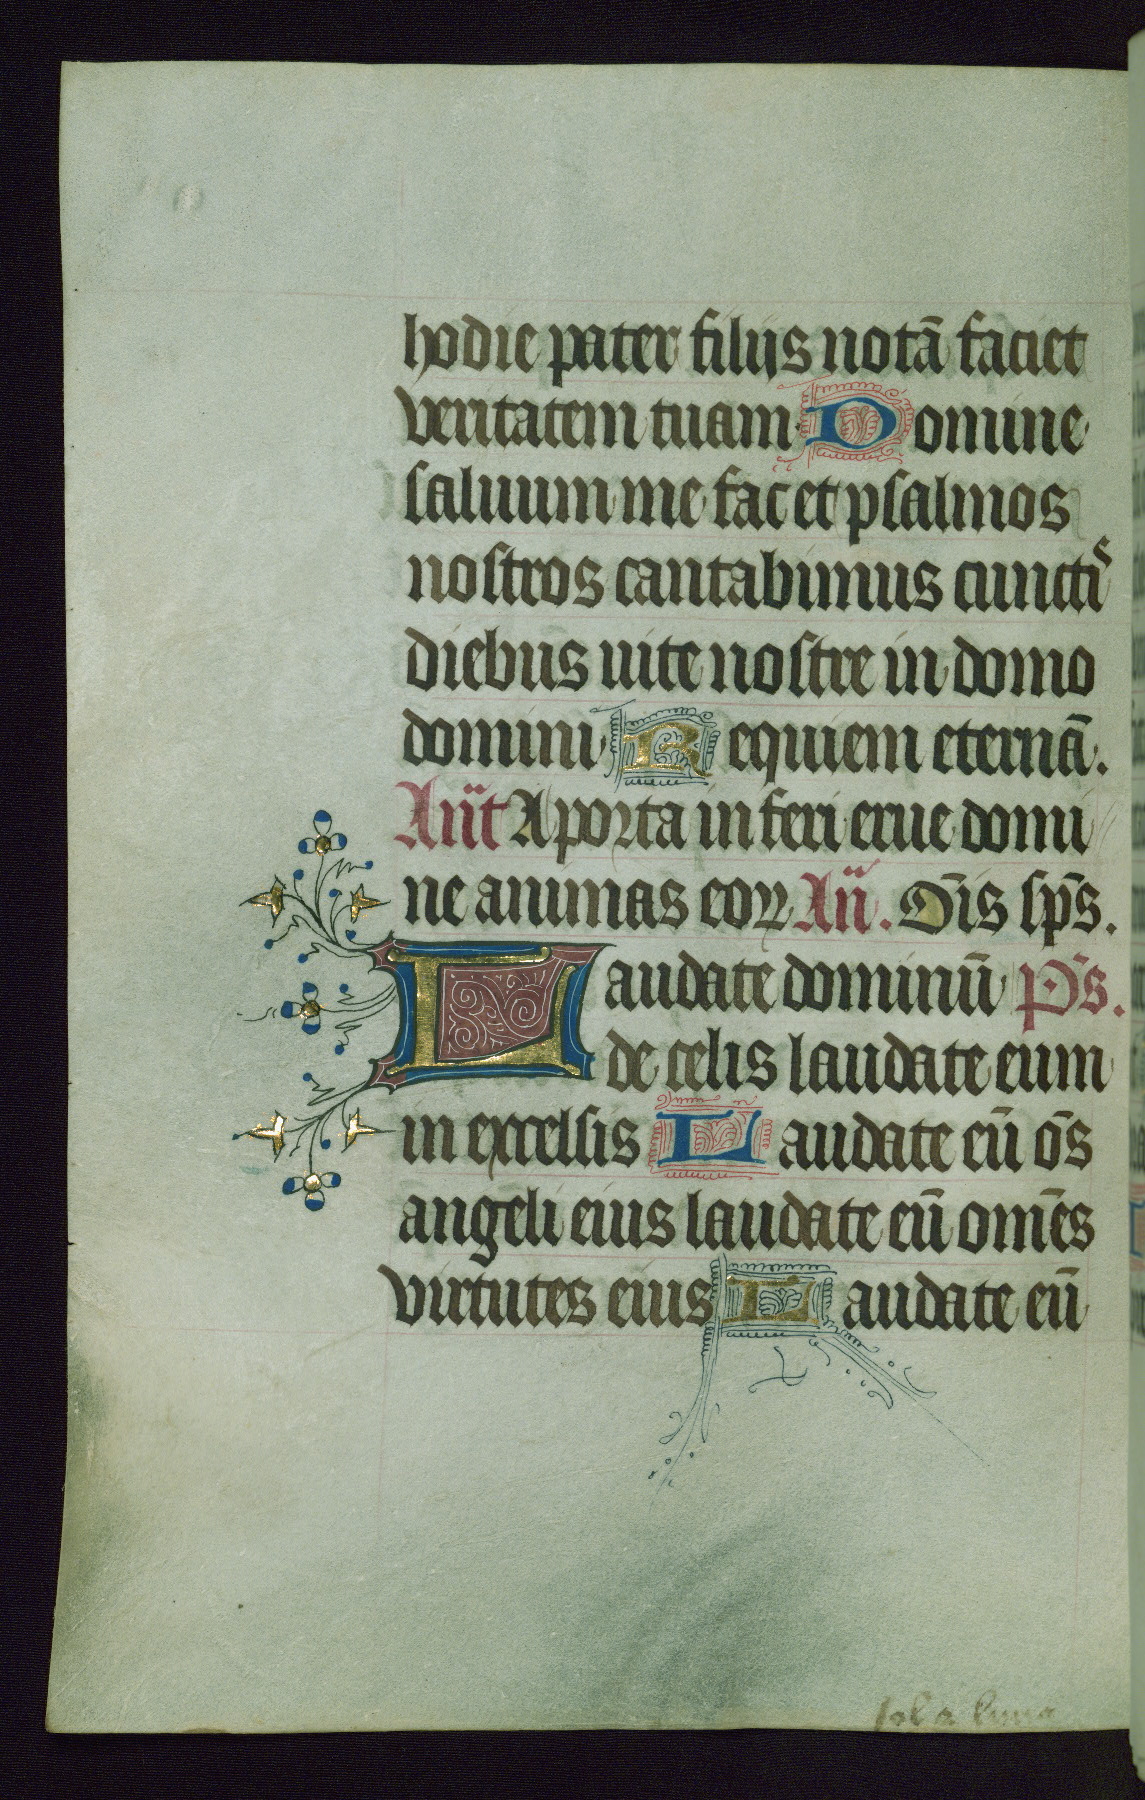 hodie pater filijs notā faciet
veritatem tuam. Domine
saluum me fac et psalmos
nostros cantabimus cunctis
diebus uite nostre in domo
domini Requiem eternā.
Añt A porta inferi erue domi
ne animas eoꝝ Añ. Oīs sp̄s.
Laudate dominū Ps.
de celis laudate eum
in excelsis Laudate eū oēs
angeli eius laudate eū om̄es
virtutes eius Laudate eū
sol & luna